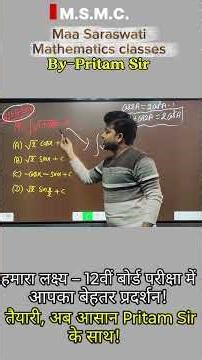 M.S.M.C.
Maa Saraswati
Mathematics classes
By-Pritam Sir
(A) √2 cosx + c
(B) √2 sinx + c
(C) -cosx - sinx + c
(D) √2 sin x/2 + c
हमारा लक्ष्य – 12वीं बोर्ड परीक्षा में
आपका बेहतर प्रदर्शन!
तैयारी, अब आसान Pritam Sir
के साथ!